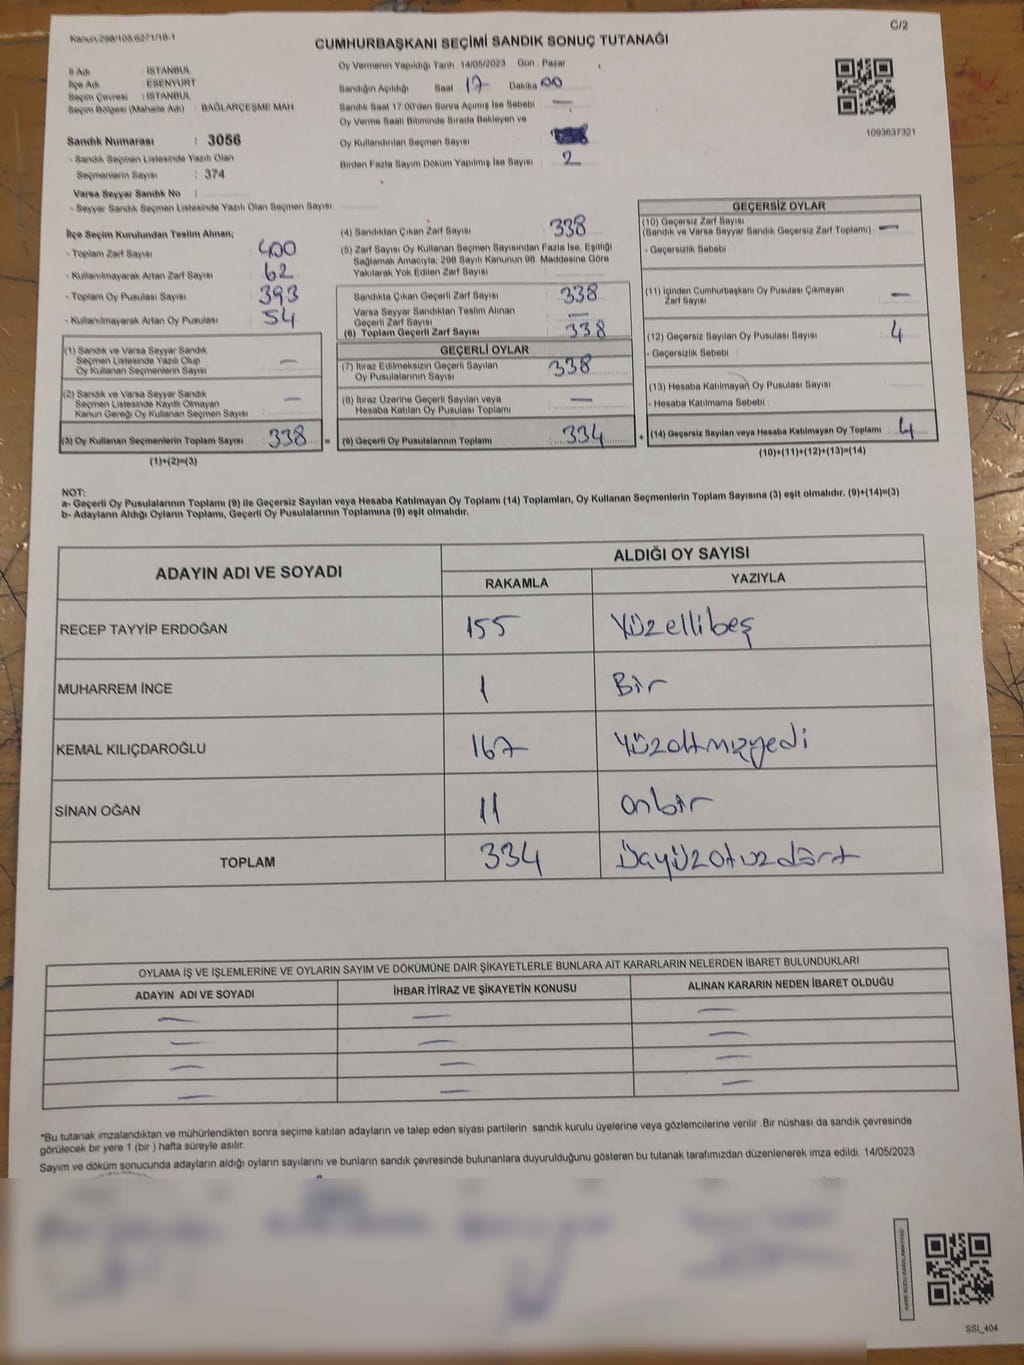 Kanun.298/105.6271/18-1
C/2
CUMHURBAŞKANI SEÇİMİ SANDIK SONUÇ TUTANAĞI
İl Adı : İSTANBUL
İlçe Adı : ESENYURT
Seçim Çevresi : İSTANBUL
Seçim Bölgesi (Mahalle Adı) : BAĞLARÇEŞME MAH
Sandık Numarası : 3056
- Sandık Seçmen Listesinde Yazılı Olan
Seçmenlerin Sayısı : 374
Varsa Seyyar Sandık No :
- Seyyar Sandık Seçmen Listesinde Yazılı Olan Seçmen Sayısı
Oy Vermenin Yapıldığı Tarih : 14/05/2023 Gün : Pazar
Sandığın Açıldığı Saat 17 Dakika 00
Sandık Saat 17:00'den Sonra Açımış İse Sebebi : —
Oy Verme Saati Bitiminde Sırada Bekleyen ve
Oy Kullandırılan Seçmen Sayısı :
Birden Fazla Sayım Döküm Yapılmış İse Sayısı : 2
1093637321
İlçe Seçim Kurulundan Teslim Alınan;
- Toplam Zarf Sayısı : 400
- Kullanılmayarak Artan Zarf Sayısı : 62
- Toplam Oy Pusulası Sayısı : 393
- Kullanılmayarak Artan Oy Pusulası : 54
(1) Sandık ve Varsa Seyyar Sandık
Seçmen Listesinde Yazılı Olup
Oy Kullanan Seçmenlerin Sayısı : —
(2) Sandık ve Varsa Seyyar Sandık
Seçmen Listesinde Kayıtlı Olmayan
Kanun Gereği Oy Kullanan Seçmen Sayısı : —
(3) Oy Kullanan Seçmenlerin Toplam Sayısı : 338 =
(1)+(2)=(3)
(4) Sandıktan Çıkan Zarf Sayısı : 338
(5) Zarf Sayısı Oy Kullanan Seçmen Sayısından Fazla İse, Eşitliği
Sağlamak Amacıyla; 298 Sayılı Kanunun 98. Maddesine Göre
Yakılarak Yok Edilen Zarf Sayısı :
Sandıkta Çıkan Geçerli Zarf Sayısı : 338
Varsa Seyyar Sandıktan Teslim Alınan
Geçerli Zarf Sayısı : —
(6) Toplam Geçerli Zarf Sayısı : 338
GEÇERLİ OYLAR
(7) İtiraz Edilmeksizin Geçerli Sayılan
Oy Pusulalarının Sayısı : 338
(8) İtiraz Üzerine Geçerli Sayılan veya
Hesaba Katılan Oy Pusulası Toplamı : —
(9) Geçerli Oy Pusulalarının Toplamı : 334 +
GEÇERSİZ OYLAR
(10) Geçersiz Zarf Sayısı
(Sandık ve Varsa Seyyar Sandık Geçersiz Zarf Toplamı) : —
- Geçersizlik Sebebi :
(11) İçinden Cumhurbaşkanı Oy Pusulası Çıkmayan
Zarf Sayısı : —
(12) Geçersiz Sayılan Oy Pusulası Sayısı : 4
- Geçersizlik Sebebi :
(13) Hesaba Katılmayan Oy Pusulası Sayısı :
- Hesaba Katılmama Sebebi :
(14) Geçersiz Sayılan veya Hesaba Katılmayan Oy Toplamı : 4
(10)+(11)+(12)+(13)=(14)
NOT:
a- Geçerli Oy Pusulalarının Toplamı (9) ile Geçersiz Sayılan veya Hesaba Katılmayan Oy Toplamı (14) Toplamları, Oy Kullanan Seçmenlerin Toplam Sayısına (3) eşit olmalıdır. (9)+(14)=(3)
b- Adayların Aldığı Oyların Toplamı, Geçerli Oy Pusulalarının Toplamına (9) eşit olmalıdır.
ADAYIN ADI VE SOYADI
ALDIĞI OY SAYISI
RAKAMLA
YAZIYLA
RECEP TAYYİP ERDOĞAN 155 Yüzellibeş
MUHARREM İNCE 1 Bir
KEMAL KILIÇDAROĞLU 167 Yüzaltmışyedi
SİNAN OĞAN 11 onbir
TOPLAM 334 Üçyüzotuzdört
OYLAMA İŞ VE İŞLEMLERİNE VE OYLARIN SAYIM VE DÖKÜMÜNE DAİR ŞİKAYETLERLE BUNLARA AİT KARARLARIN NELERDEN İBARET BULUNDUKLARI
ADAYIN ADI VE SOYADI İHBAR İTİRAZ VE ŞİKAYETİN KONUSU ALINAN KARARIN NEDEN İBARET OLDUĞU
— — —
— — —
— — —
— — —
*Bu tutanak imzalandıktan ve mühürlendikten sonra seçime katılan adayların ve talep eden siyasi partilerin sandık kurulu üyelerine veya gözlemcilerine verilir. Bir nüshası da sandık çevresinde
görülecek bir yere 1 (bir ) hafta süreyle asılır.
Sayım ve döküm sonucunda adayların aldığı oyların sayılarını ve bunların sandık çevresinde bulunanlara duyurulduğunu gösteren bu tutanak tarafımızdan düzenlenerek imza edildi. 14/05/2023
SSI_404